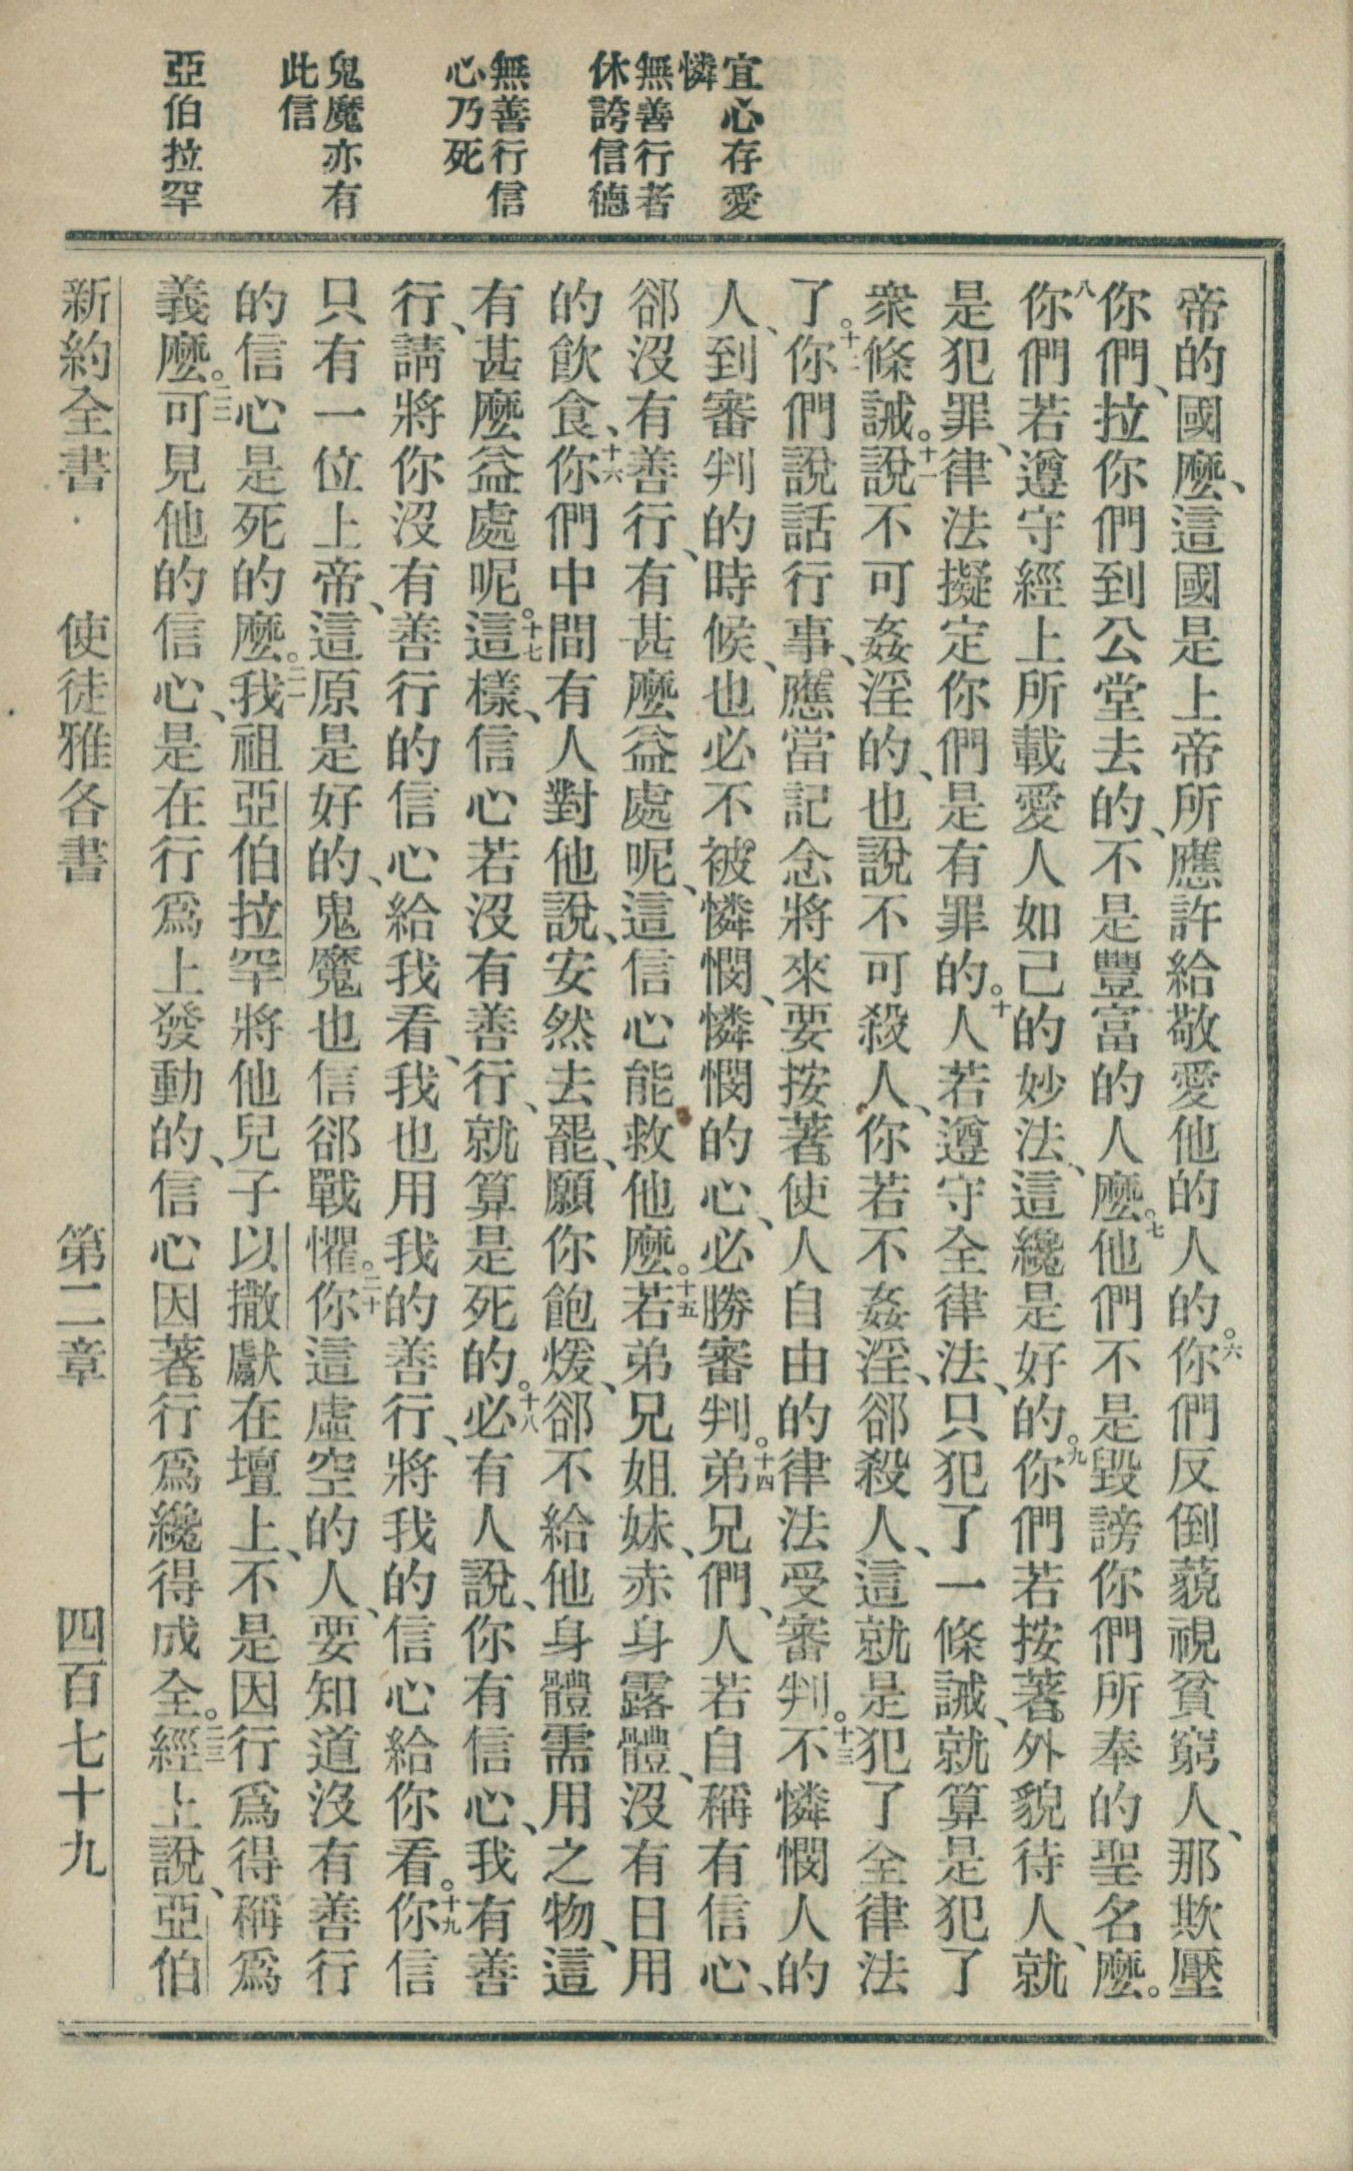 宜心存愛
憐
無善行者
休誇信德
無善行信
心乃死
鬼魔亦有
此信
亞伯拉罕
帝的國麽、這國是上帝所應許給敬愛他的人的。六你們反倒藐視貧窮人、那欺壓
你們、拉你們到公堂去的、不是豐富的人麽。七他們不是毀謗你們所奉的聖名麽。
八你們若遵守經上所載愛人如己的妙法、這纔是好的。九你們若按著外貌待人、就
是犯罪、律法擬定你們是有罪的。十人若遵守全律法、只犯了一條誡、就算是犯了
衆條誡。十一說不可姦淫的、也說不可殺人、你若不姦淫、郤殺人、這就是犯了全律法
了。十二你們說話行事、應當記念將來要按著使人自由的律法受審判。十三不憐憫人的
人、到審判的時候、也必不被憐憫、憐憫的心、必勝審判。十四弟兄們、人若自稱有信心、
郤沒有善行、有甚麽益處呢、這信心能救他麽。十五若弟兄姐妹、赤身露體、沒有日用
的飲食、十六你們中間有人對他說、安然去罷、願你飽煖、郤不給他身體需用之物、這
有甚麽益處呢。十七這樣、信心若沒有善行、就算是死的。十八必有人說、你有信心、我有善
行、請將你沒有善行的信心給我看、我也用我的善行、將我的信心給你看。十九你信
只有一位上帝、這原是好的、鬼魔也信郤戰懼。二十你這虛空的人、要知道沒有善行
的信心是死的麽。二一我祖亞伯拉罕將他兒子以撒獻在壇上、不是因行爲得稱爲
義麽。二二可見他的信心、是在行爲上發動的、信心因著行爲纔得成全。二三經上說、亞伯
新約全書 使徒雅各書 第二章 四百七十九